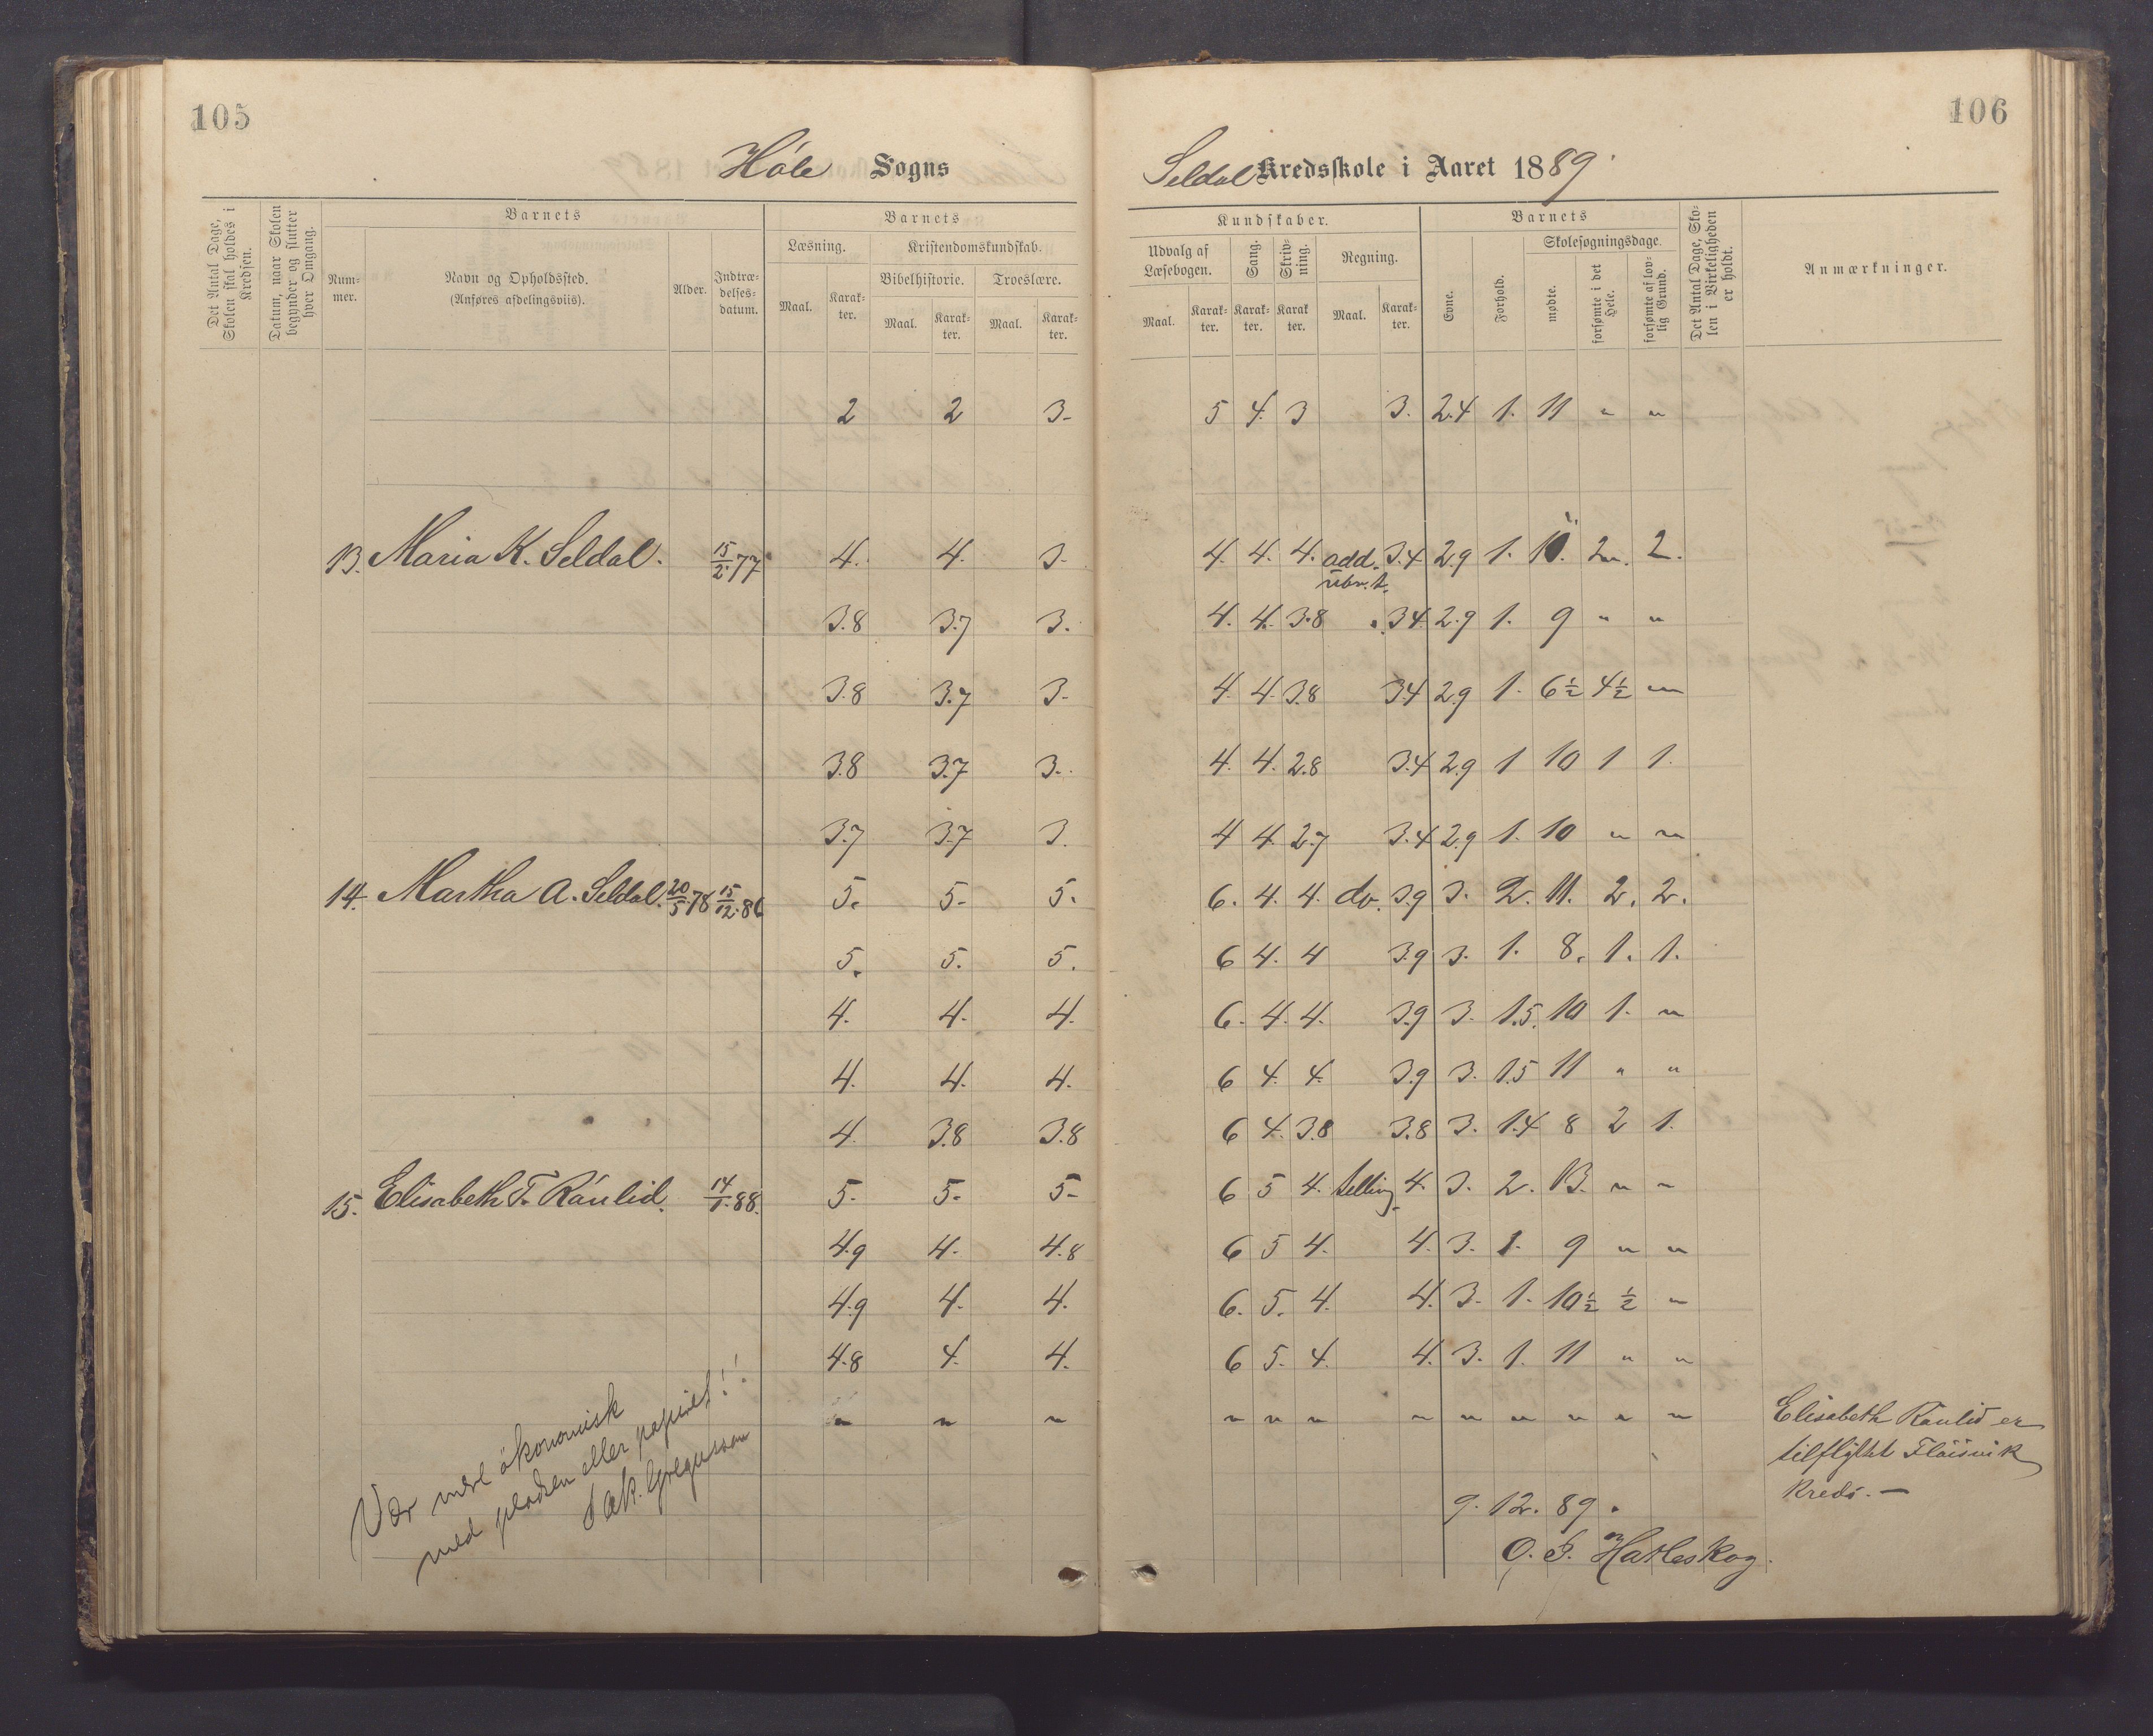 105
Høle Sogns
Det Antal Dage, Skolen skal holdes i Kredsen.
Datum, naar Skolen begynder og slutter hver Omgang.
Barnets
Num-mer.
Navn og Opholdssted.
(Anføres afdelingsviis).
Alder.
Indtræ-delses-datum.
Barnets
Læsning.
Kristendomskundskab.
Bibelhistorie. Troeslære.
Maal. Karak-ter. Maal. Karak-ter. Maal. Karak-ter.
2 2 3-
13. Maria K. Seldal. 15/2.77 4. 4. 3-
3.8 3.7 3.
3.8 3.7 3-
3.8 3.7 3.
3.7 3.7 3.
14. Martha A. Seldal. 20/5.78 15/12.86 5. 5- 5.
5. 5. 5.
4. 4. 4.
4. 4. 4.
4. 3.8 3.8
15. Elisabeth T. Raulid. 14/1.88. 5. 5- 5-
4.9 4. 4.8
4.9 4. 4.
4.8 4. 4.
" " "
Vær mere økonomisk
med pladsen eller papiret!!
106
Seldal Kredsskole i Aaret 1889.
Kundskaber.
Udvalg af Læsebogen.
Sang.
Skriv-ning.
Regning.
Maal. Karak-ter. Karak-ter. Karak-ter. Maal. Karak-ter.
Barnets
Evne.
Forhold.
Skolesøgningsdage.
mødte.
forsømte i det Hele.
forsømte af lov-lig Grund.
Det Antal Dage, Sko-len i Virkeligheden er holdt.
Anmærkninger.
5 4. 3 3. 2.4 1. 11 " "
4. 4. 4. add. 3.4 2.9 1. 10. 2. 2.
4. 4. 3.8 3.4 2.9 1. 9 " "
4. 4. 3.8 3.4 2.9 1. 6½ 4½ "
4. 4. 2.8 3.4 2.9 1 10 1 1.
4 4. 2.7 3.4 2.9 1. 10 " "
6. 4. 4. do. 3.9 3. 2. 11. 2. 2.
6 4. 4 3.9 3. 1. 8. 1. 1.
6. 4. 4. 3.9 3. 1.5. 10 1. "
6 4. 4. 3.9 3. 1.5 11 " "
6 4. 3.8 3.8 3. 1.4 8 2 1.
6 5 4. telling 4. 3. 2. 13. " "
6 5 4. 4. 3. 1. 9 " "
6. 5. 4. 4. 3. 1. 10½ ½ "
6 5. 4. 4. 3. 1. 11 " "
" " " " " " " " "
Elisabeth Raulid er
tilflyttet Fløisvik
Kreds. -
9. 12. 89.
O. G. Hatleskog.